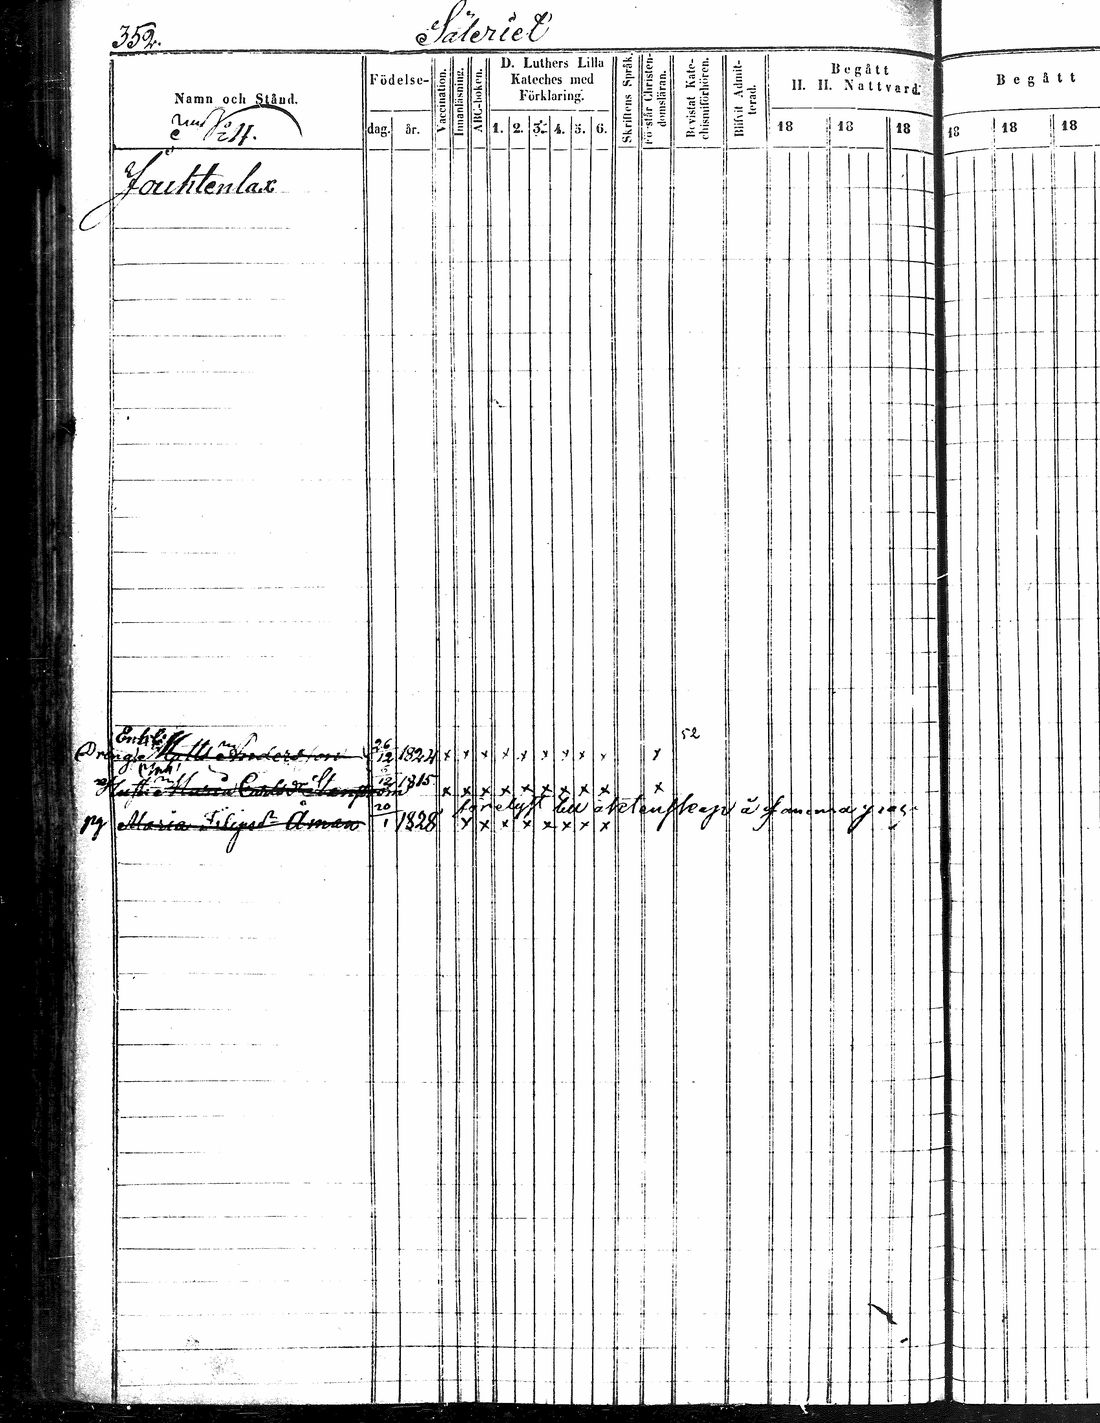 352.
Säteriet
Namn och Stånd.
Födelse-
dag.
år.
Vaccination.
Innanläsning.
ABC-boken.
D. Luthers Lilla
Kateches med
Förklaring.
1. 2. 3. 4. 5. 6.
Skriftens Språk
Förstår Christen-
domsläran.
Bevistat Kate-
chismiförhören.
Blifvit Admit-
terad.
Begått
H. H. Nattvard.
18 18 18
Begått
18 18 18
Jouhtenlax
52
Dräng Matts Andersson 26/12 1824 x x x x x x x x x x
Hust. Maria Carlsdr 12 1815 x x x x x x x x x x
förelyst till äktenskap
pg Maria Filipsdr Åman 20/1 1828 x x x x x x x x